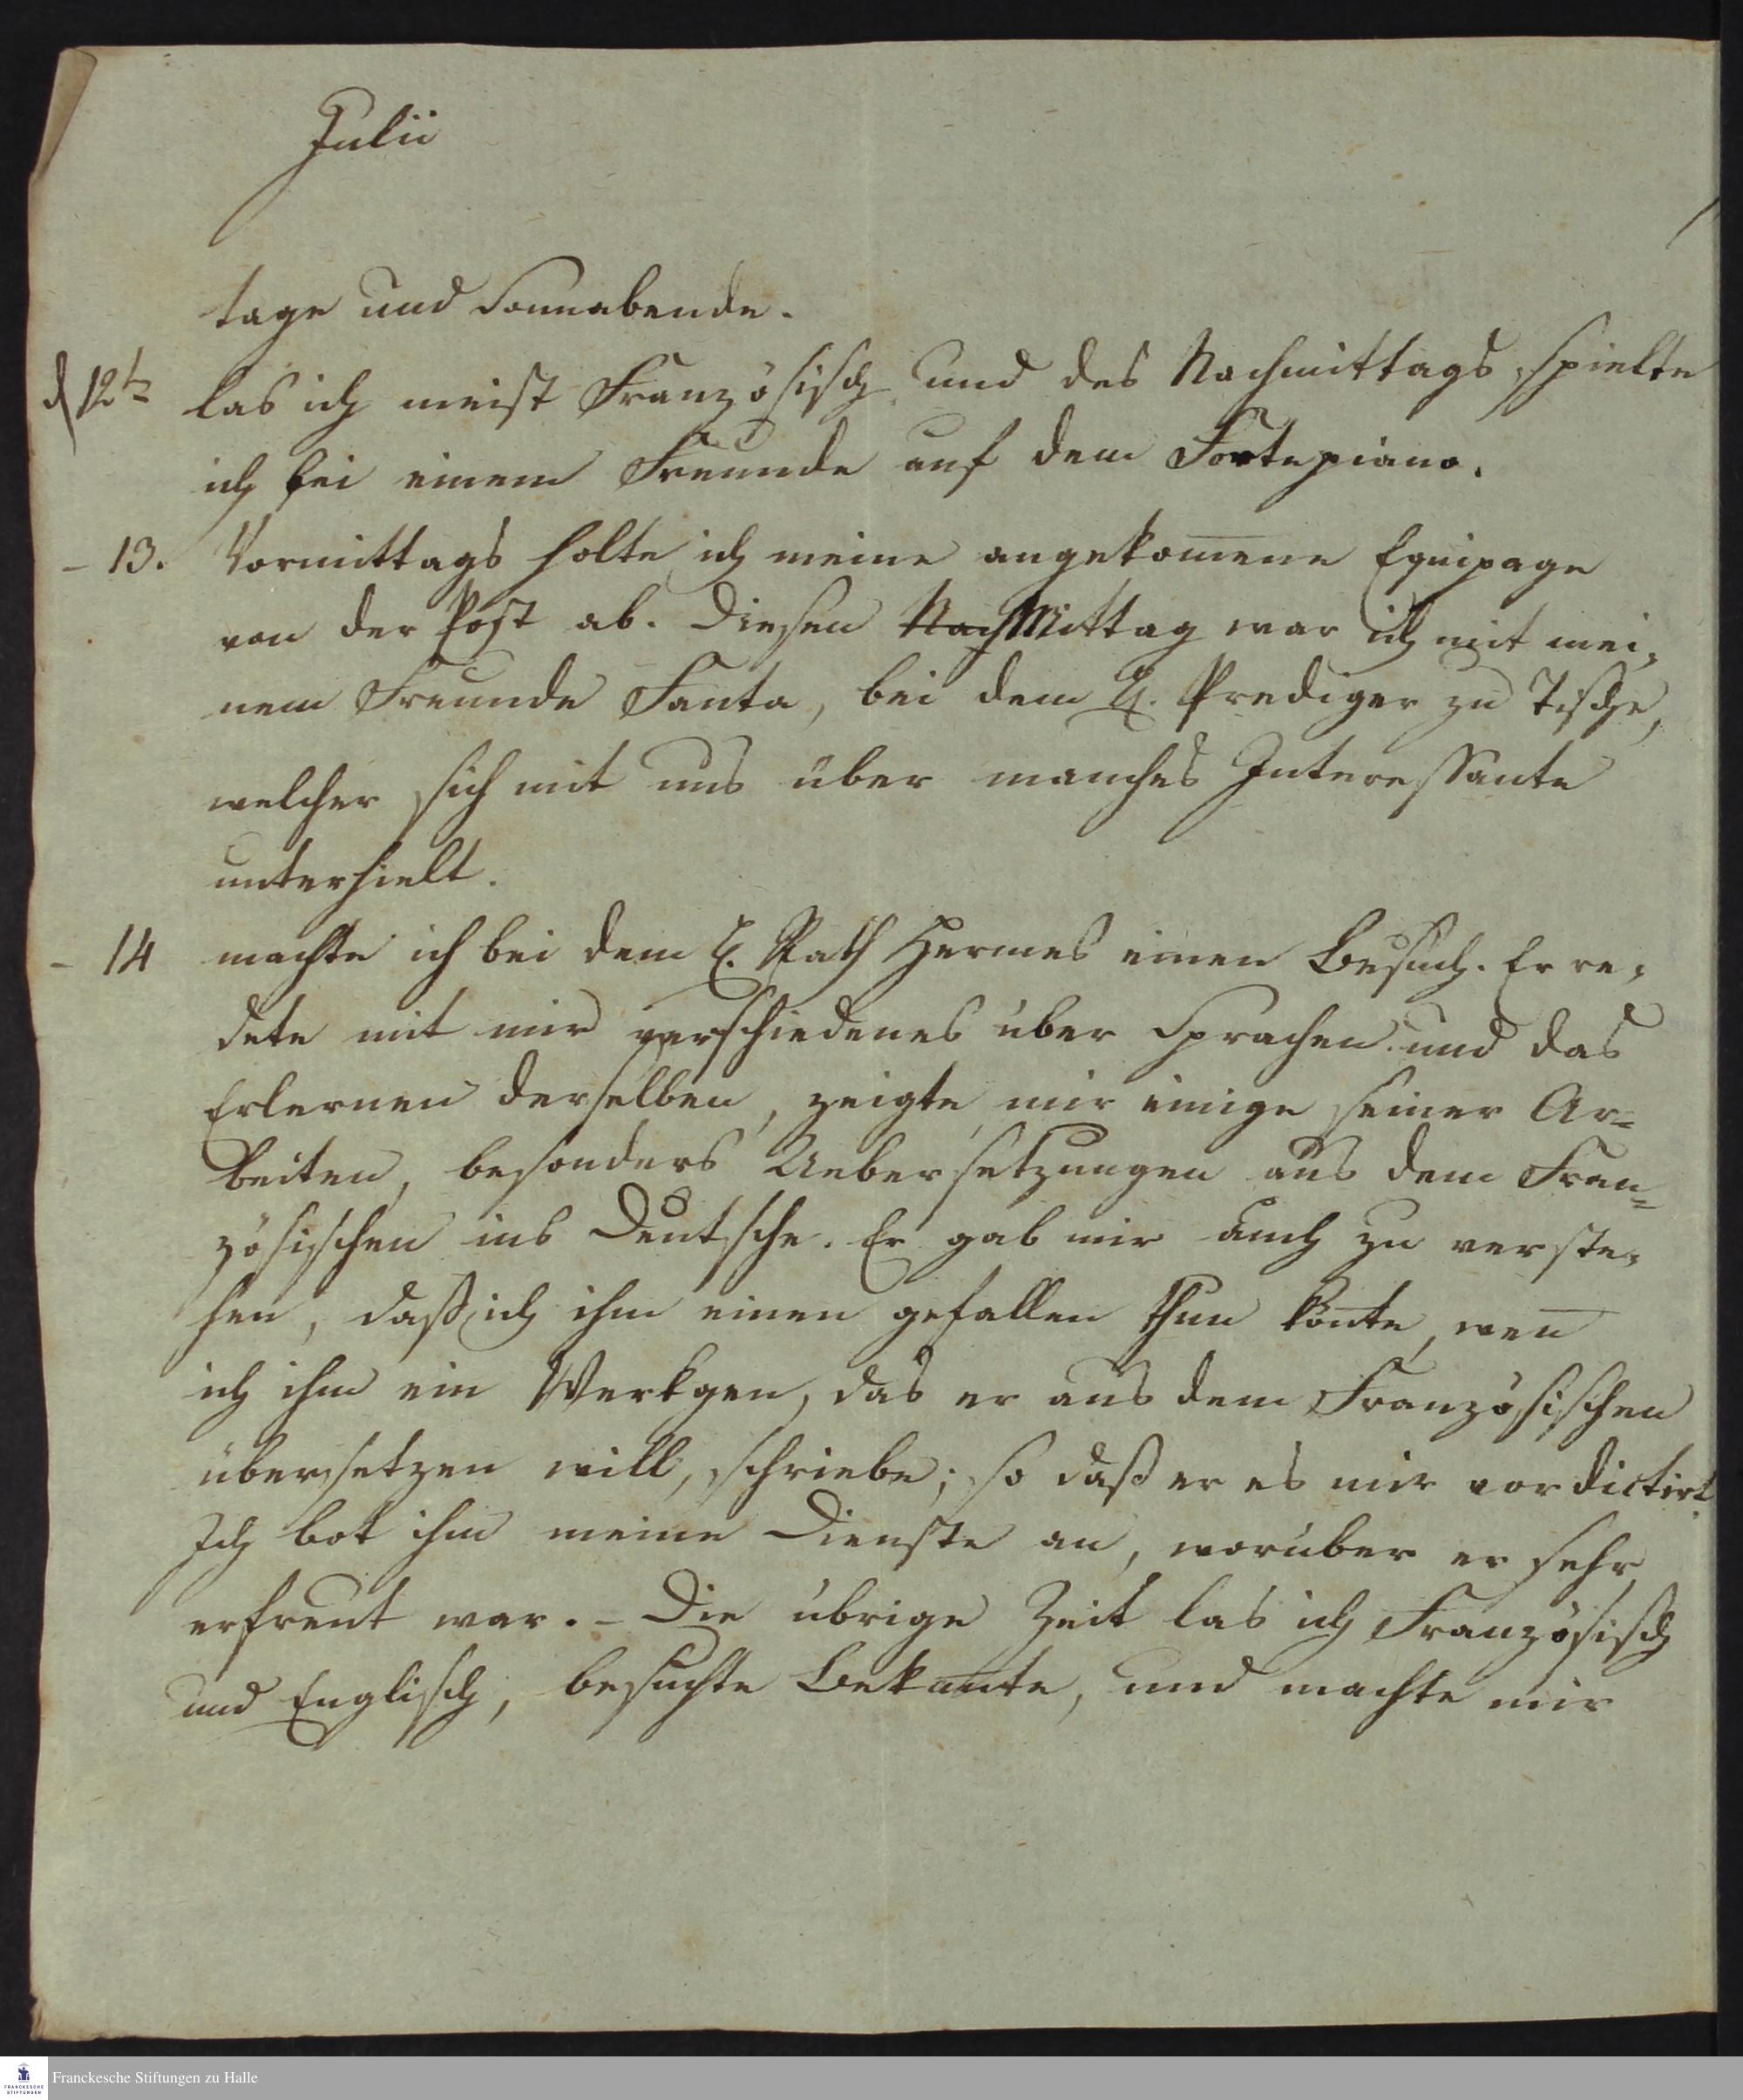 Julii
tage und Sonnabende.
d 12t. las ich meist Französisch und des Nachmittags spielte
ich bei einem Freunde auf dem Fortepiano.
– 13. Vormittags holte ich meine angekom̄ene Equipage
von der Post ab. Diesen Nach Mittag war ich mit mei-
nem Freunde Santa, bei dem H. Prediger zu Tische,
welcher sich mit uns über manches Interessante
unterhielt.
– 14 machte ich bei dem H. Rath Hermes einen Besuch. Er re-
dete mit mir verschiedenes über Sprachen und das
Erlernen derselben, zeigte mir einige seiner Ar=
beiten, besonders Uebersetzungen aus dem Fran=
zösischen ins Deutsche. Er gab mir auch zu verste-
hen, daß ich ihm einen gefallen thun kön̄te, wen̄
ich ihm ein Werkgen, das er aus dem Französischen
übersetzen will, schriebe; so daß er es mir vordictirt.
Ich bot ihm meine Dienste an, worüber er sehr
erfreut war. – Die übrige Zeit las ich Französisch
und Englisch, besuchte Bekan̄te, und machte mir
Franckesche Stiftungen zu Halle